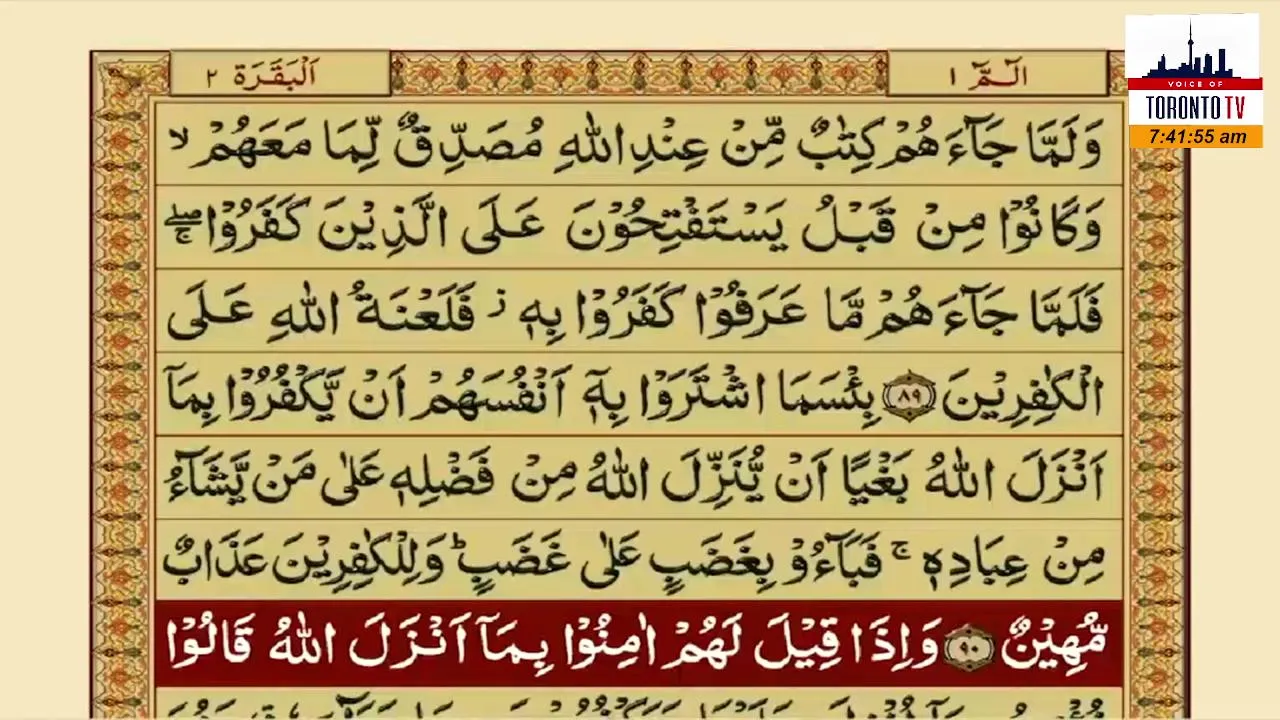 اَلْبَقَرَة ٢
الٓمّٓ ١
VOICE OF
TORONTO TV
7:41:55 am
وَلَمَّا جَآءَهُمْ كِتٰبٌ مِّنْ عِنْدِ اللّٰهِ مُصَدِّقٌ لِّمَا مَعَهُمْ ۙ
وَكَانُوْا مِنْ قَبْلُ يَسْتَفْتِحُوْنَ عَلَى الَّذِيْنَ كَفَرُوْا ۖۚ
فَلَمَّا جَآءَهُمْ مَّا عَرَفُوْا كَفَرُوْا بِهٖ ز فَلَعْنَةُ اللّٰهِ عَلَى
الْكٰفِرِيْنَ ٨٩ بِئْسَمَا اشْتَرَوْا بِهٖٓ اَنْفُسَهُمْ اَنْ يَّكْفُرُوْا بِمَآ
اَنْزَلَ اللّٰهُ بَغْيًا اَنْ يُّنَزِّلَ اللّٰهُ مِنْ فَضْلِهٖ عَلٰى مَنْ يَّشَآءُ
مِنْ عِبَادِهٖ ۚ فَبَآءُوْ بِغَضَبٍ عَلٰى غَضَبٍ ؕ وَلِلْكٰفِرِيْنَ عَذَابٌ
مُّهِيْنٌ ٩٠ وَاِذَا قِيْلَ لَهُمْ اٰمِنُوْا بِمَآ اَنْزَلَ اللّٰهُ قَالُوْا